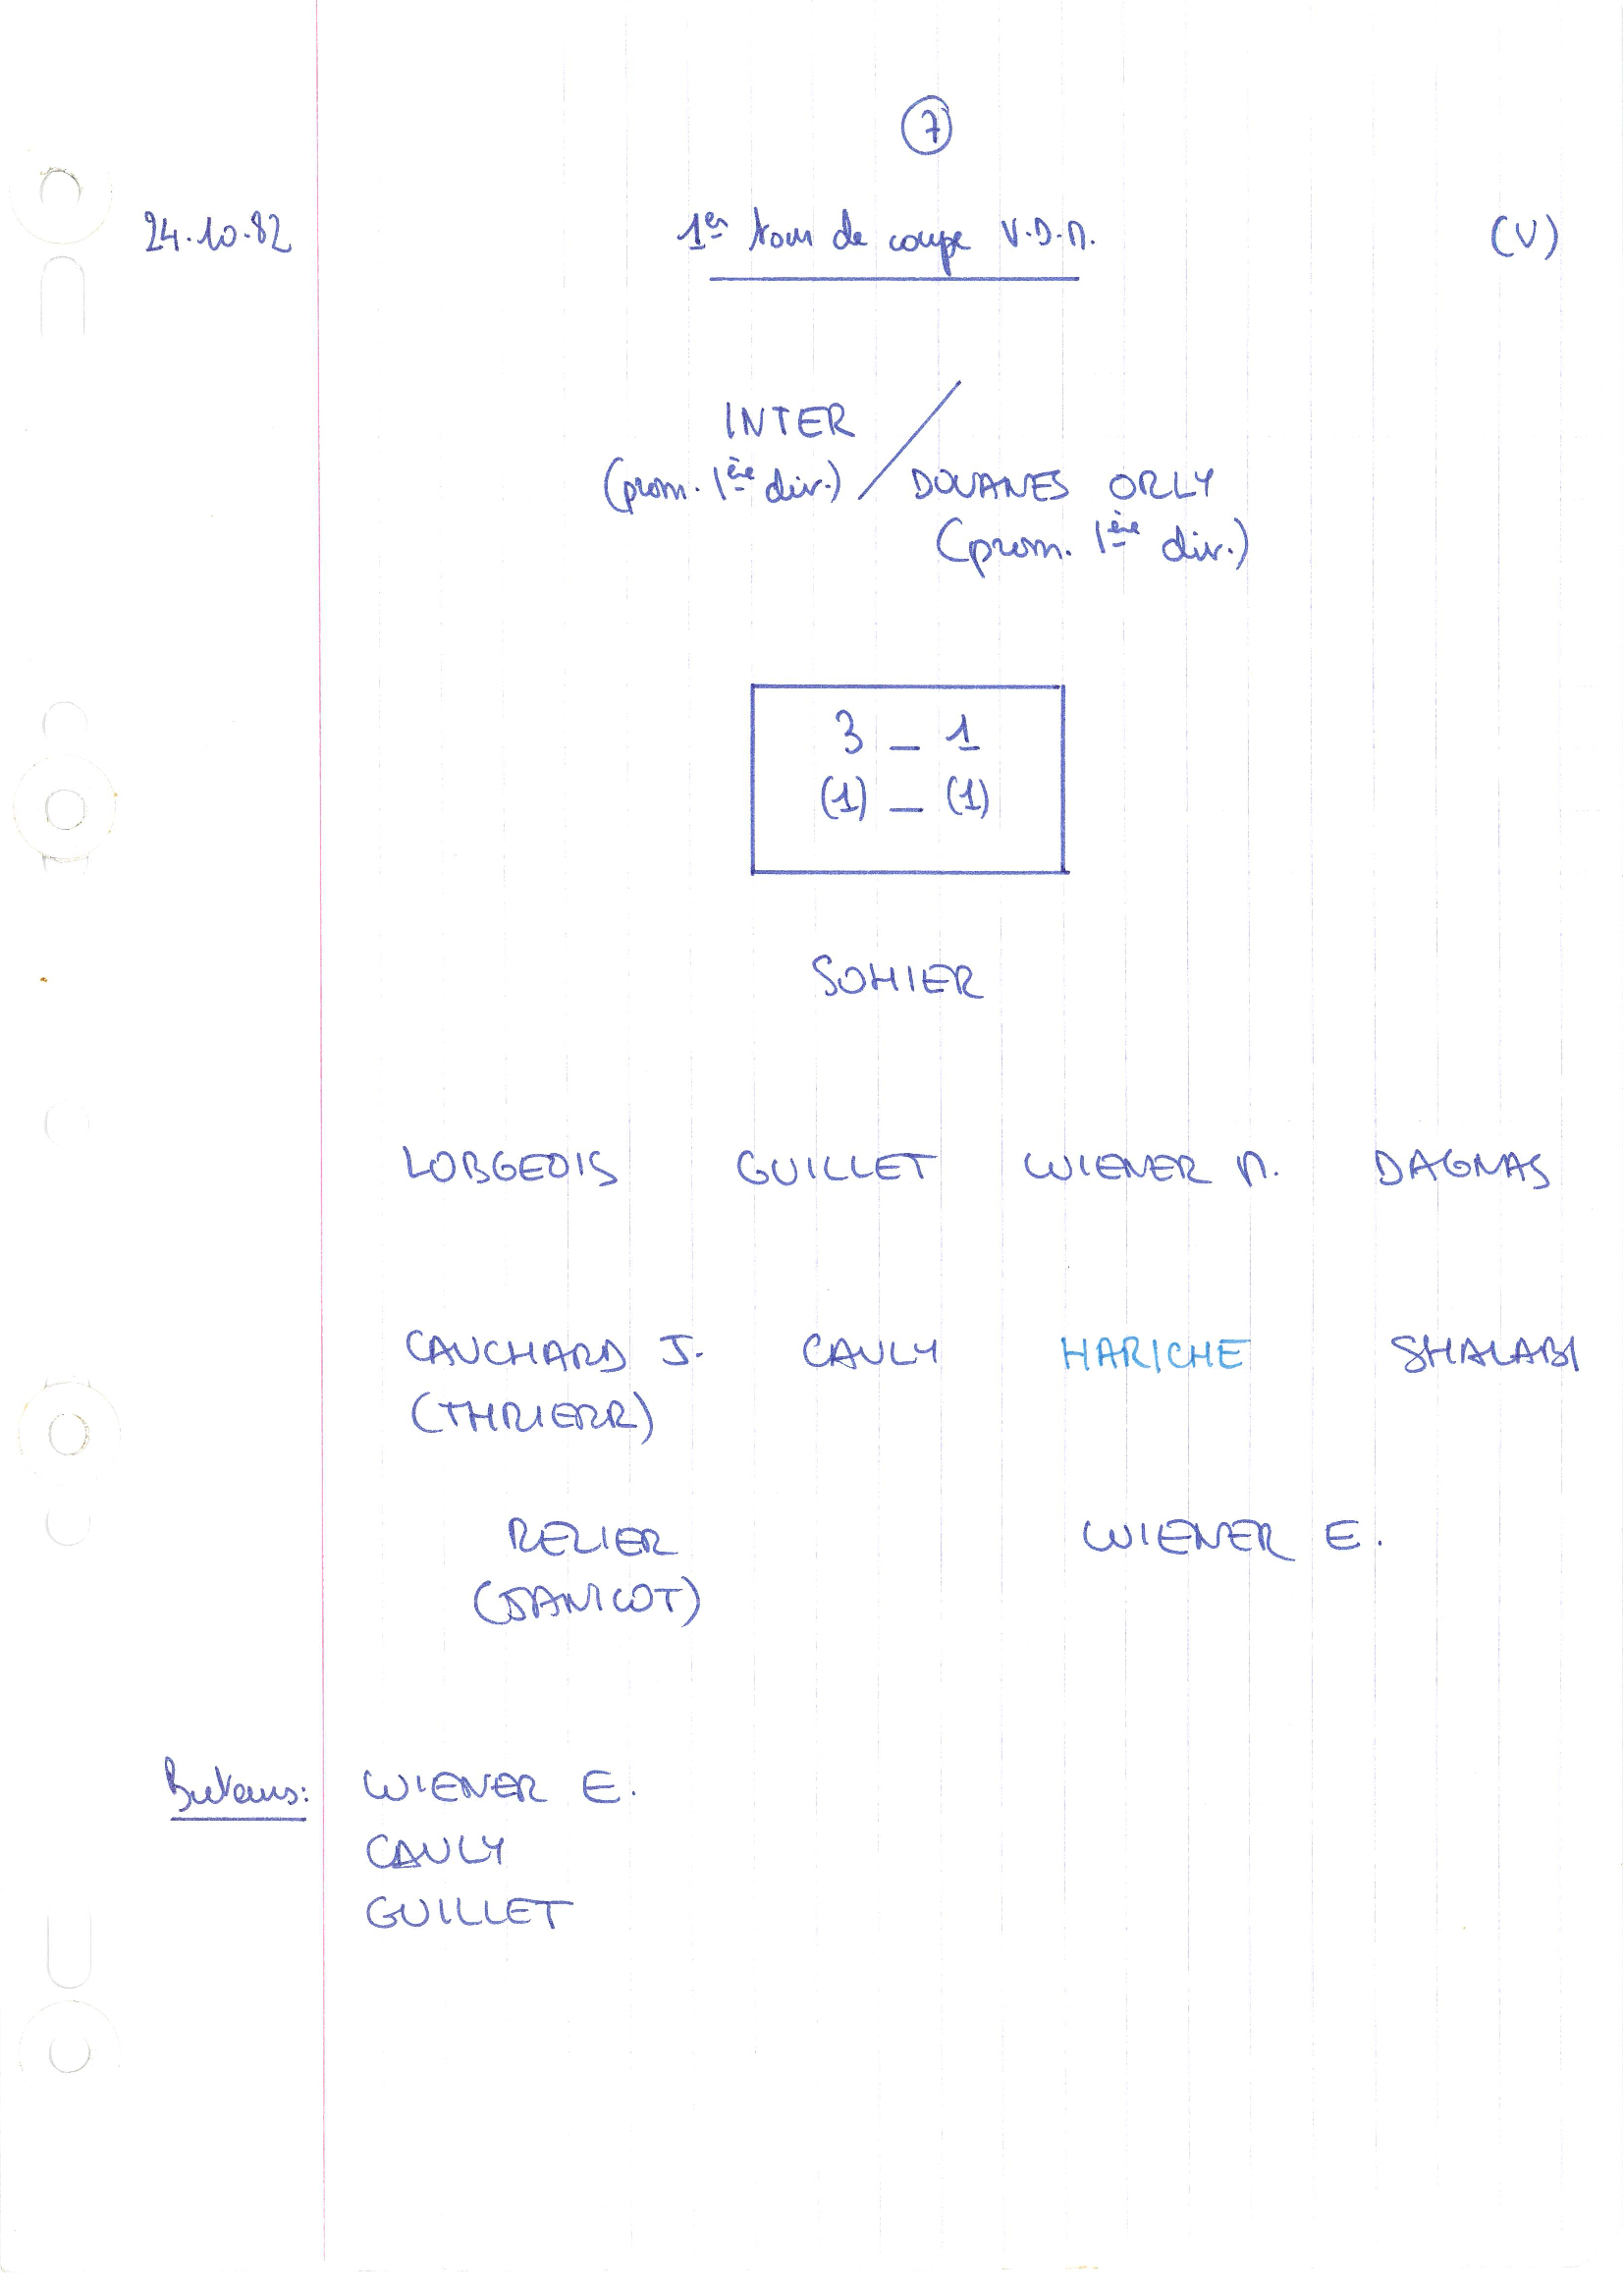 7
24.10.82 1er tour de coupe V.D.M. (V)
INTER
(prom. 1ère div.) / DOUANES ORLY
(prom. 1ère div.)
3 - 1
(1) - (1)
SOHIER
LOBGEOIS GUILLET WIENER M. DAGNAS
CAUCHARD J. CAULY HARICHE SHALABI
(THRIERR)
REZIER WIENER E.
(DANICOT)
Buteurs: WIENER E.
CAULY
GUILLET